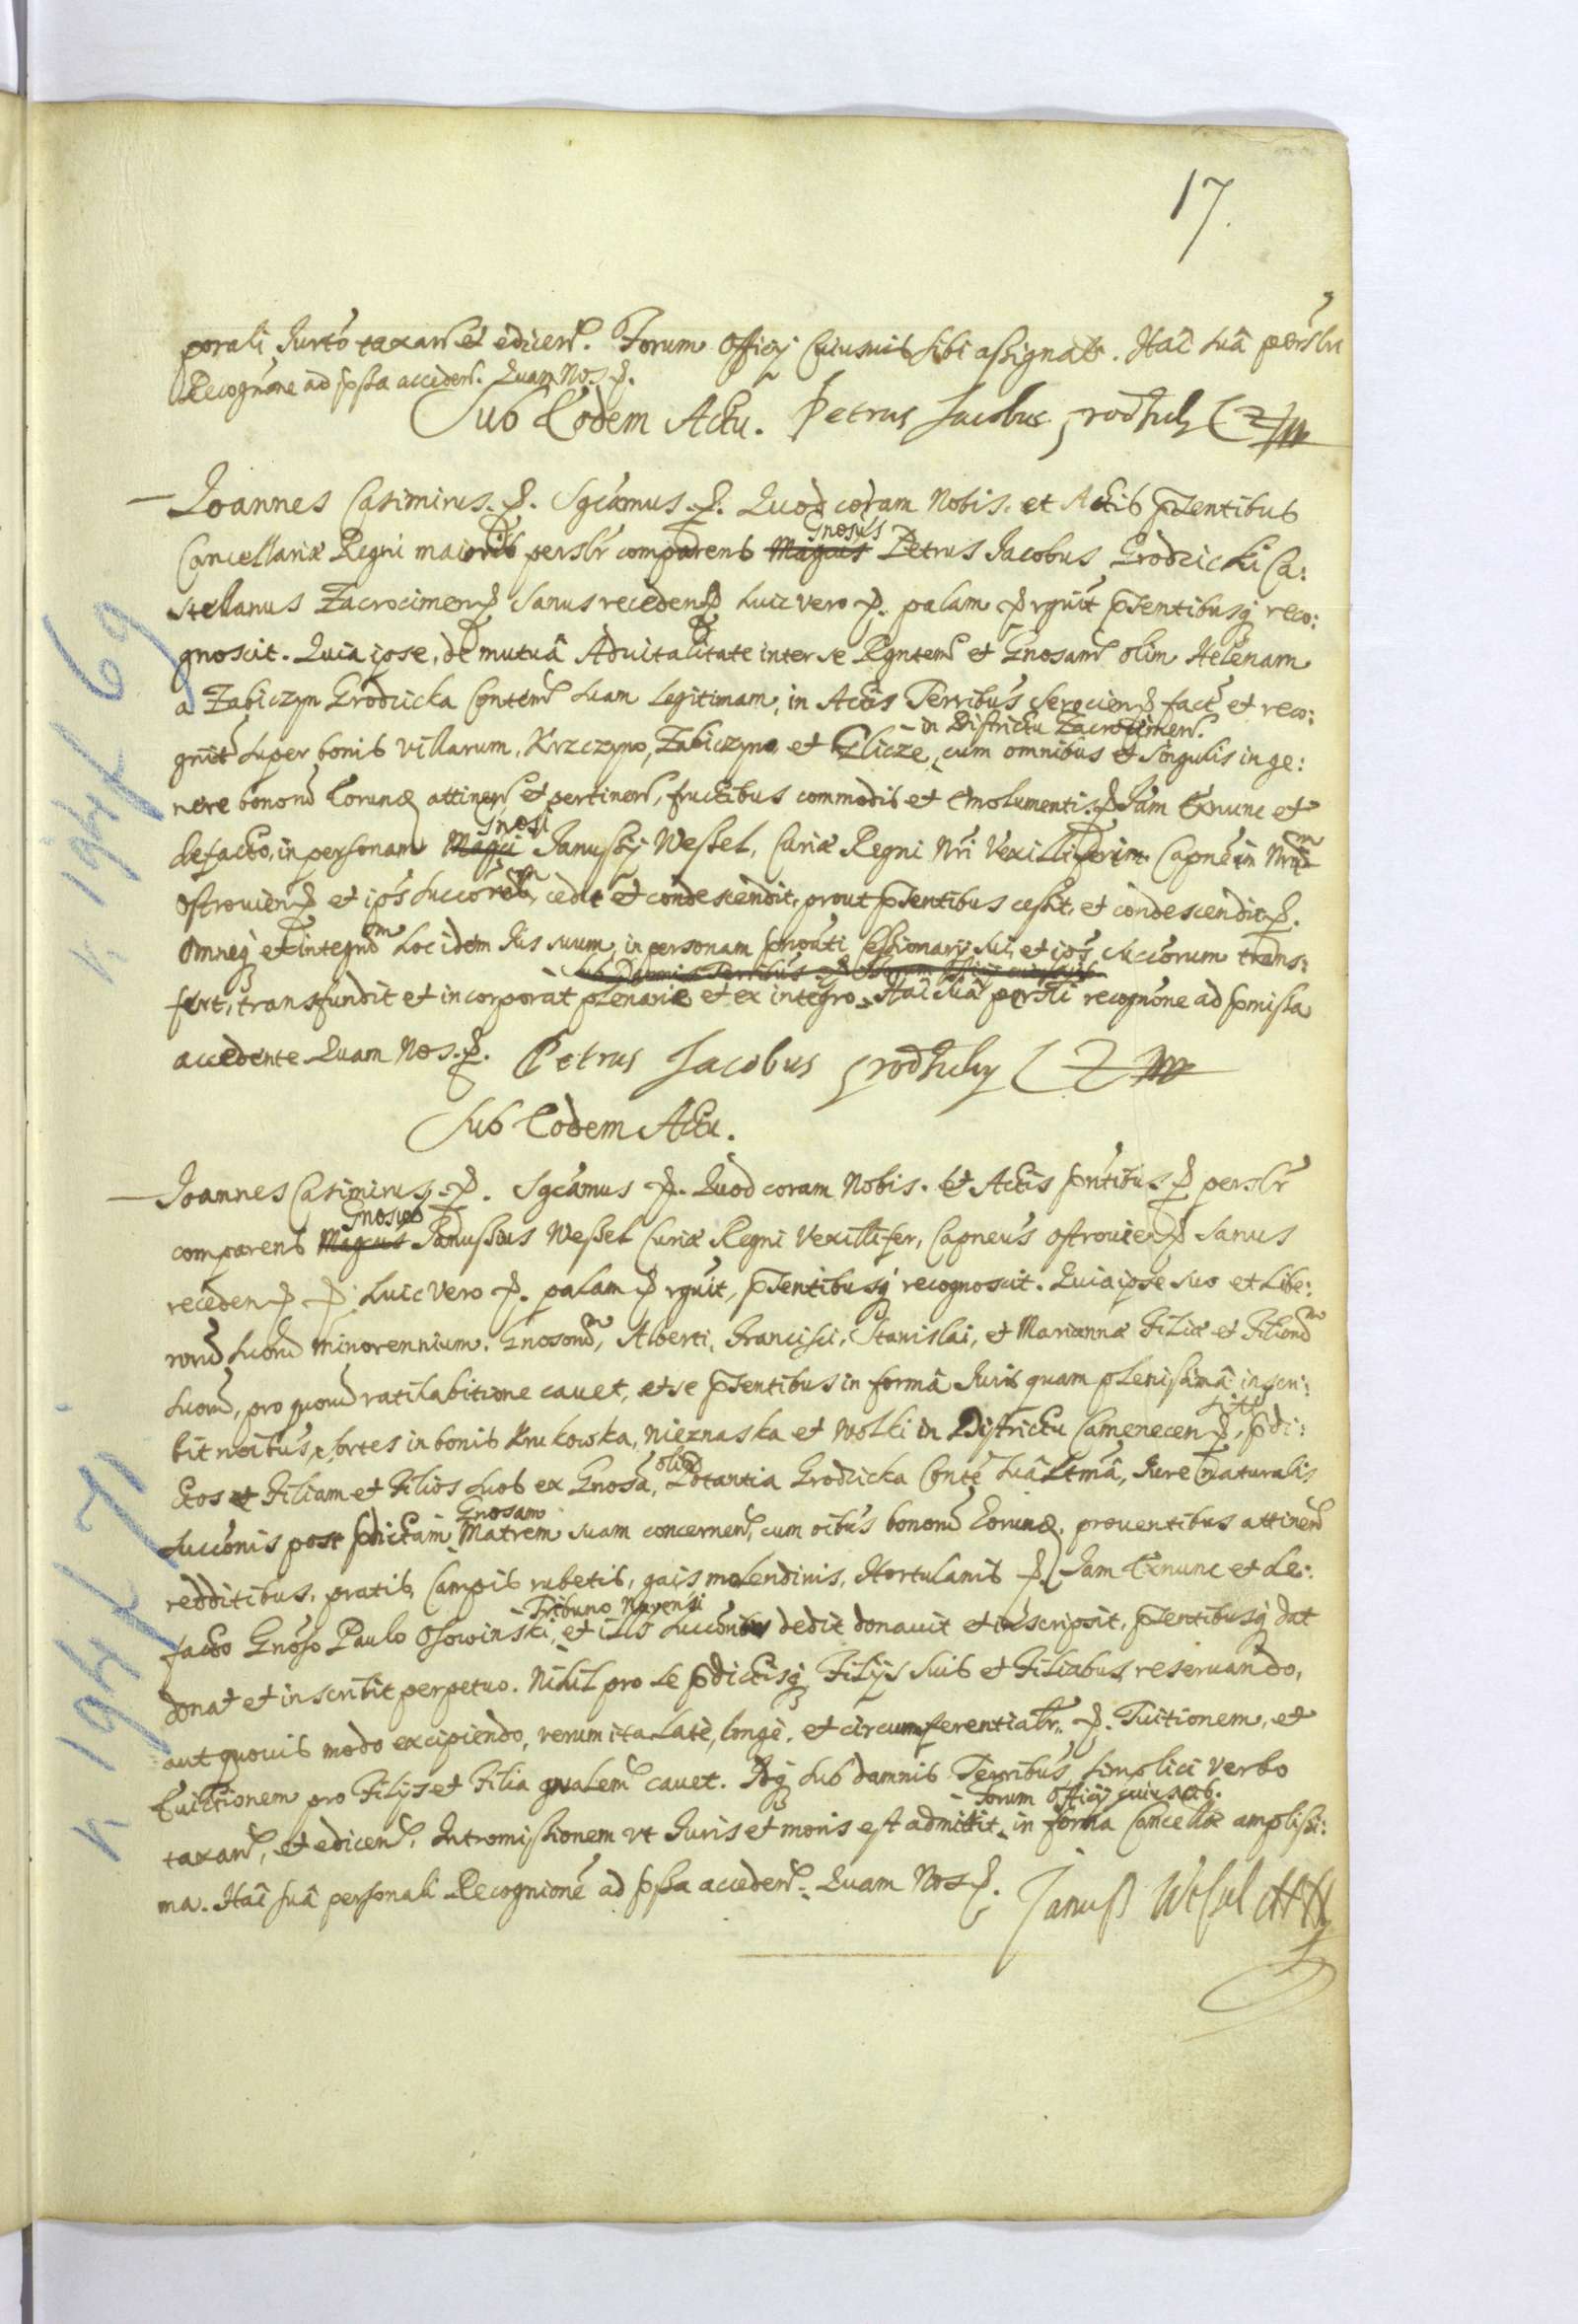 17.
porali Jurto taxan et edicen. Forum Officij Cuiusuis sibi assignate. Hac sua perslri
Recognone ad pssa acceden. Quam Nos p.
Sub Eodem Actu. Petrus Jacobus Grodzicky CZ mp
Joannes Casimirus p. Sgcamus p. Quod coram Nobis et Actis psentibus
Cancellariæ Regni maioris perslr comparens Magcus Gnosus Petrus Jacobus Grodzicki Ca:
stellanus Zacrocimen p sanus receden p huic vero p. palam p rguit psentibusq reco:
gnoscit. Quia ipse, de mutuâ Aduitalitate inter se Rgntem et Gnosam olim Helenam
a Zabiczyn Grodzicka Contem suam legitimam, in Actis Terribus Serocien p fact et reco:
gnit super bonis villarum, Krzczyno, Zabiczyno et Glicze, in Districtu Zacrocimen. cum omnibus et singulis in ge:
nere bonom Eorunq attinen et pertinen, fructibus commodis et emolumentis p Jam Exnunc et
defacto, in personam Magci Gnosi Janussij Wessel, Curiæ Regni Nri Vexilliferim Capnei
Ostrouien p et ips succorum, cedit et condescendit, prout psentibus cessit, et condescendit p.
Omneq et integrum hoc idem Jus suum in personam Cessionarij sui, et ips succorum trans:
Sub Damnis Terribus
fert, transfundit et incorporat plenarie et ex integro. Hac sua perslli recognone ad pmissa
accedente Quam Nos p. Petrus Jacobus Grodzicky CZ mp
Sub Eodem Actu.
Joannes Casimirus p. Sgcamus p. Quod coram Nobis. et Actis pntibus p perslr
comparens Magcus Gnosus Janussius Wessel Curiæ Regni Vexillifer, Capneus Ostrouien p sanus
receden p p huic vero p. palam p rguit, psentibusq recognoscit. Quia ipse suo et Libe:
rorum suorum minorennium. Gnosorum, Alberti, Francisci, Stanislai, et Mariannæ Filiæ et Filiorum
suorum, pro quorum ratihabitione cauet, et se psentibus in formâ Juris quam plenissimâ inscri:
bit noibus, sortes in bonis Krukowka, Nieznaska et Wolki in Districtu Camenecen p, sitt. pdi:
ctos et Filiam et Filios suos ex Gnosa, olim Grodzicka Conte sua Ltmâ, Jure naturalis
succonis post pdictam Gnosam Matrem suam concernen, cum oibus bonom Eorunq. prouentibus attinen
redditibus, pratis, Campis rubetis, gais molendinis, Hortulanis p. Jam Exnunc et de:
facto Gnoso Paulo Osowinski, Tribuno Nuren et illius succoribus dedit donauit et inscripsit, psentibusq dat
donat et inscribit perpetuo. Nihil pro se pdictisq Filijs suis et Filiabus reseruando,
aut quouis modo excipiendo, verum ita Latè, longè. et circumferentialr. p. Tuitionem, et
Euictionem pro Filijs et Filia gnalem cauet. Idq sub damnis Terribus simplici verbo
taxan, et edicen. Intromissionem vt Juris et moris est admittit, Forum Officij cuiusuis. in forma Cancellæ amplissi:
ma. Hac sua personali Recognione ad pssa acceden. Quam Nos p. Janusz Wessel
K 194 k 69
K 194 k 71